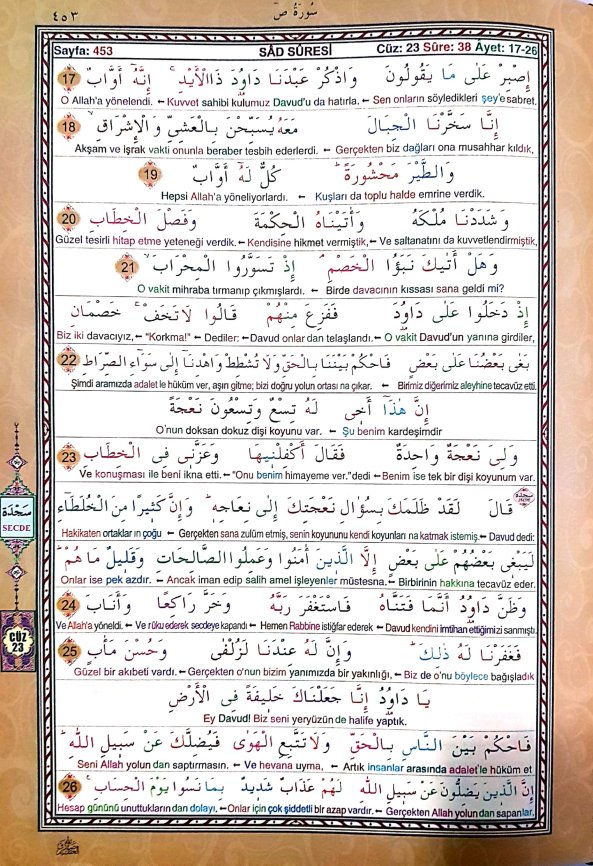 ٤٥٣ سُورَةُ صٓ
Sayfa: 453 SÂD SÛRESİ Cüz: 23 Sûre: 38 Âyet: 17-26
اِصْبِرْ عَلٰى مَا يَقُولُونَ وَاذْكُرْ عَبْدَنَا دَاوُ۫دَ ذَا الْاَيْدِۚ اِنَّهُٓ اَوَّابٌ 17
O Allah'a yönelendi. ← Kuvvet sahibi kulumuz Davud'u da hatırla. ← Sen onların söyledikleri şey'e sabret.
اِنَّا سَخَّرْنَا الْجِبَالَ مَعَهُ يُسَبِّحْنَ بِالْعَشِيِّ وَالْاِشْرَاقِۙ 18
Akşam ve işrak vakti onunla beraber tesbih ederlerdi. ← Gerçekten biz dağları ona musahhar kıldık,
وَالطَّيْرَ مَحْشُورَةًۜ كُلٌّ لَهُٓ اَوَّابٌ 19
Hepsi Allah'a yöneliyorlardı. ← Kuşları da toplu halde emrine verdik.
وَشَدَدْنَا مُلْكَهُ وَاٰتَيْنَاهُ الْحِكْمَةَ وَفَصْلَ الْخِطَابِ 20
Güzel tesirli hitap etme yeteneği verdik. ← Kendisine hikmet vermiştik, ← Ve saltanatını da kuvvetlendirmiştik,
وَهَلْ اَتٰيكَ نَبَؤُا الْخَصْمِۢ اِذْ تَسَوَّرُوا الْمِحْرَابَۙ 21
O vakit mihraba tırmanıp çıkmışlardı. ← Birde davacının kıssası sana geldi mi?
اِذْ دَخَلُوا عَلٰى دَاوُ۫دَ فَفَزِعَ مِنْهُمْ قَالُوا لَا تَخَفْۚ خَصْمَانِ
Biz iki davacıyız, ← "Korkma!" ← Dediler: ← Davud onlar dan telaşlandı. ← O vakit Davud'un yanına girdiler,
بَغٰى بَعْضُنَا عَلٰى بَعْضٍ فَاحْكُمْ بَيْنَنَا بِالْحَقِّ وَلَا تُشْطِطْ وَاهْدِنَٓا اِلٰى سَوَٓاءِ الصِّرَاطِ 22
Şimdi aramızda adalet le hüküm ver, aşırı gitme; bizi doğru yolun ortası na çıkar. ← Birimiz diğerimiz aleyhine tecavüz etti.
اِنَّ هٰذَٓا اَخ۪ي لَهُ تِسْعٌ وَتِسْعُونَ نَعْجَةً
O'nun doksan dokuz dişi koyunu var. ← Şu benim kardeşimdir
وَلِيَ نَعْجَةٌ وَاحِدَةٌ فَقَالَ اَكْفِلْن۪يهَا وَعَزَّن۪ي فِي الْخِطَابِ 23
Ve konuşması ile beni ikna etti. ← "Onu benim himayeme ver."dedi ← Benim ise tek bir dişi koyunum var.
سجدة
قَالَ لَقَدْ ظَلَمَكَ بِسُؤَالِ نَعْجَتِكَ اِلٰى نِعَاجِه۪ۜ وَاِنَّ كَث۪يرًا مِنَ الْخُلَطَٓاءِ
Hakikaten ortaklar ın çoğu ← Gerçekten sana zulüm etmiş, senin koyununu kendi koyunları na katmak istemiş. ← Davud dedi:
لَيَبْغ۪ي بَعْضُهُمْ عَلٰى بَعْضٍ اِلَّا الَّذ۪ينَ اٰمَنُوا وَعَمِلُوا الصَّالِحَاتِ وَقَل۪يلٌ مَا هُمْۜ
Onlar ise pek azdır. ← Ancak iman edip salih amel işleyenler müstesna. ← Birbirinin hakkına tecavüz eder.
وَظَنَّ دَاوُ۫دُ اَنَّمَا فَتَنَّاهُ فَاسْتَغْفَرَ رَبَّهُ وَخَرَّ رَاكِعًا وَاَنَابَ 24
Ve Allah'a yöneldi. ← Ve rüku ederek secdeye kapandı ← Hemen Rabbine istiğfar ederek ← Davud kendini imtihan ettiğimizi sanmıştı.
فَغَفَرْنَا لَهُ ذٰلِكَۜ وَاِنَّ لَهُ عِنْدَنَا لَزُلْفٰى وَحُسْنَ مَاٰبٍ 25
Güzel bir akıbeti vardı. ← Gerçekten o'nun bizim yanımızda bir yakınlığı, ← Biz de o'nu böylece bağışladık
يَا دَاوُ۫دُ اِنَّا جَعَلْنَاكَ خَل۪يفَةً فِي الْاَرْضِ
Ey Davud! Biz seni yeryüzün de halife yaptık.
فَاحْكُمْ بَيْنَ النَّاسِ بِالْحَقِّ وَلَا تَتَّبِعِ الْهَوٰى فَيُضِلَّكَ عَنْ سَب۪يلِ اللّٰهِۜ
Seni Allah yolun dan saptırmasın. ← Ve hevana uyma, ← Artık insanlar arasında adalet'le hüküm et
اِنَّ الَّذ۪ينَ يَضِلُّونَ عَنْ سَب۪يلِ اللّٰهِ لَهُمْ عَذَابٌ شَد۪يدٌ بِمَا نَسُوا يَوْمَ الْحِسَابِ۟ 26
Hesap gününü unuttukların dan dolayı, ← Onlar için çok şiddetli bir azap vardır. ← Gerçekten Allah yolun dan sapanlar.
سَجْدَة
SECDE
CÜZ
23